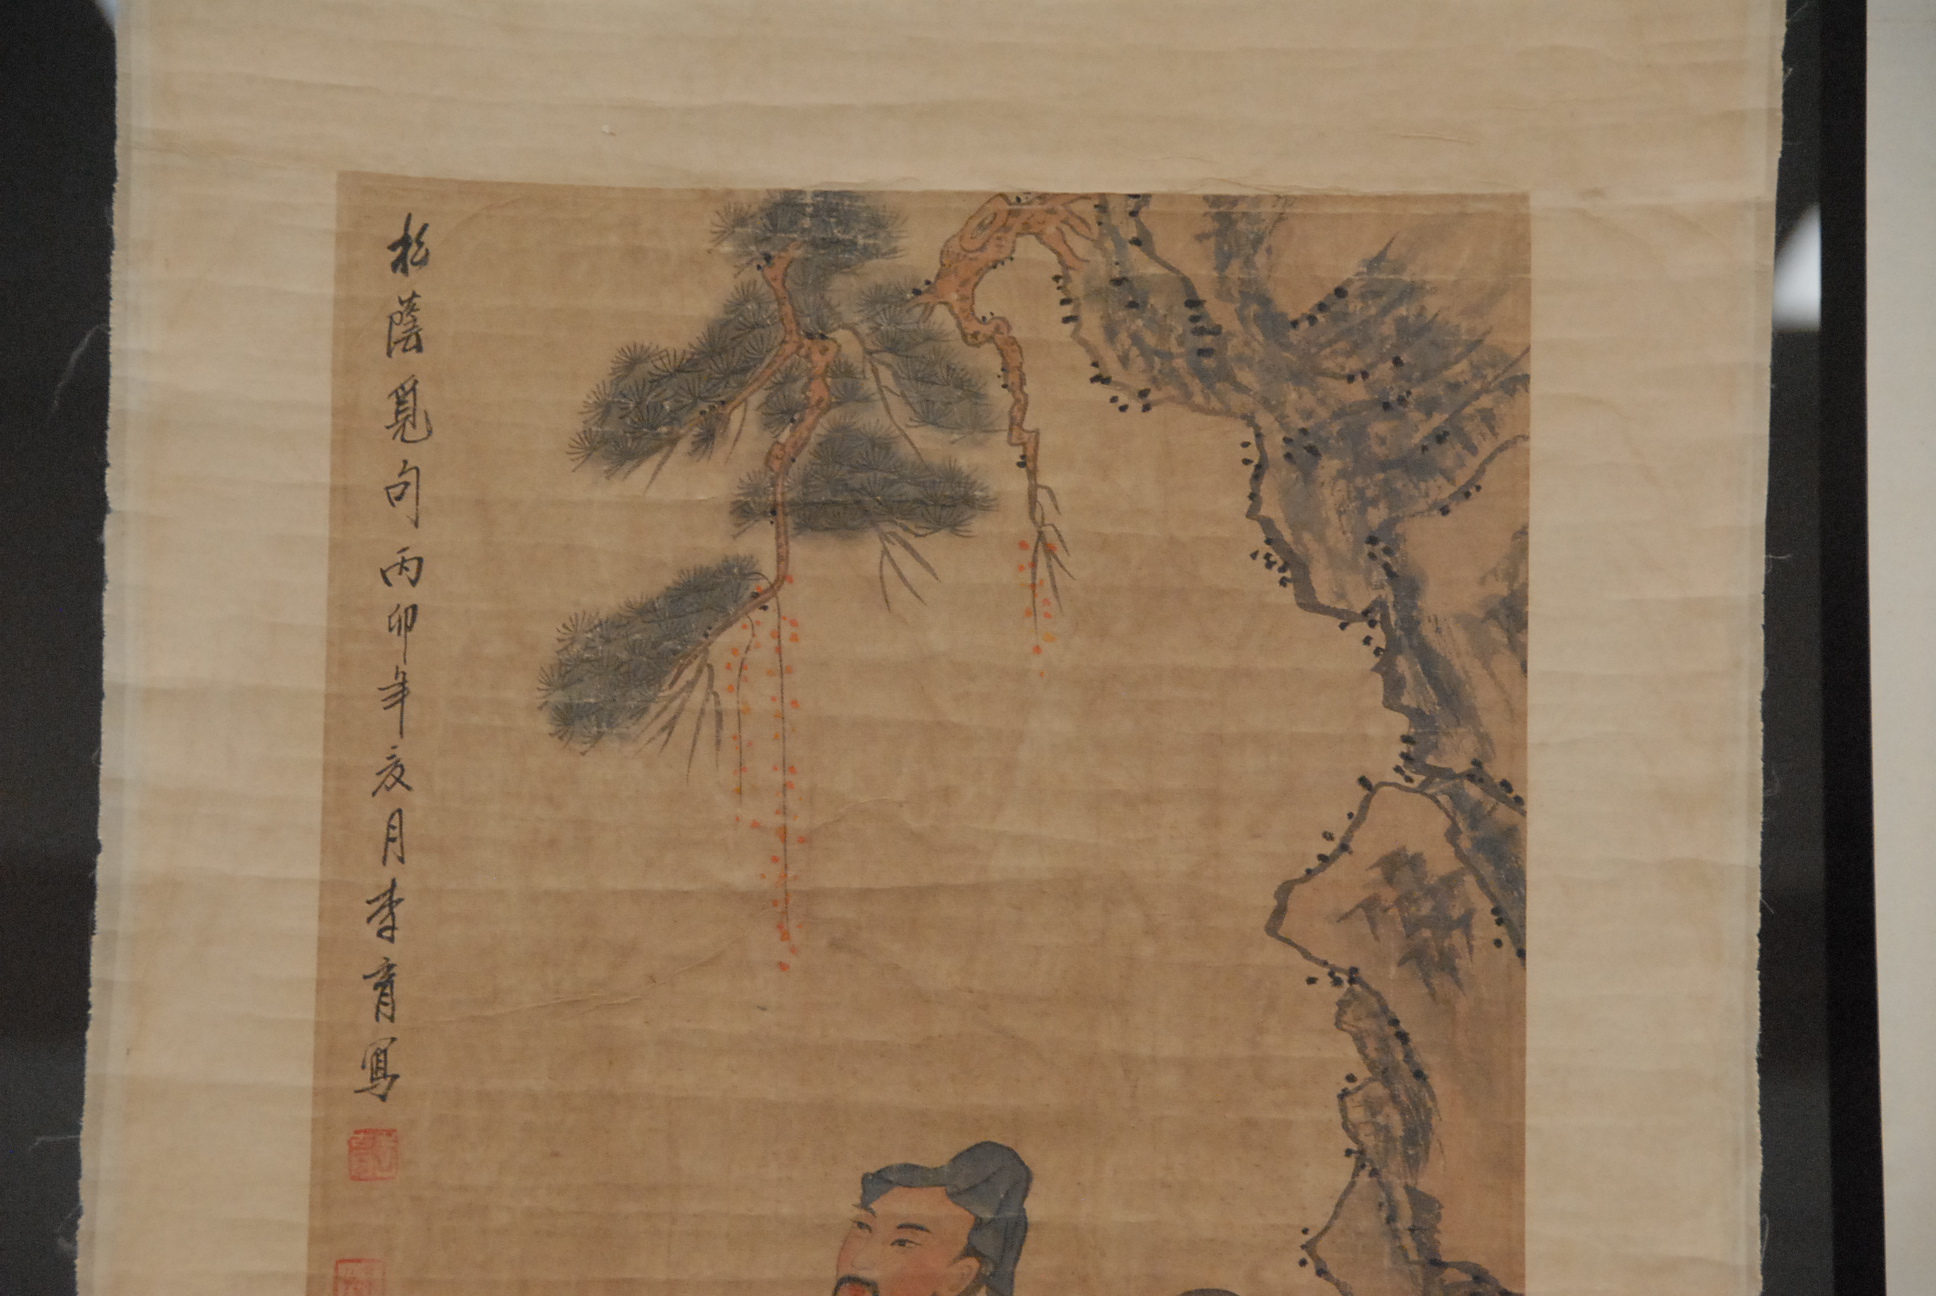 松蔭覓句丙卯年亥月李育寫